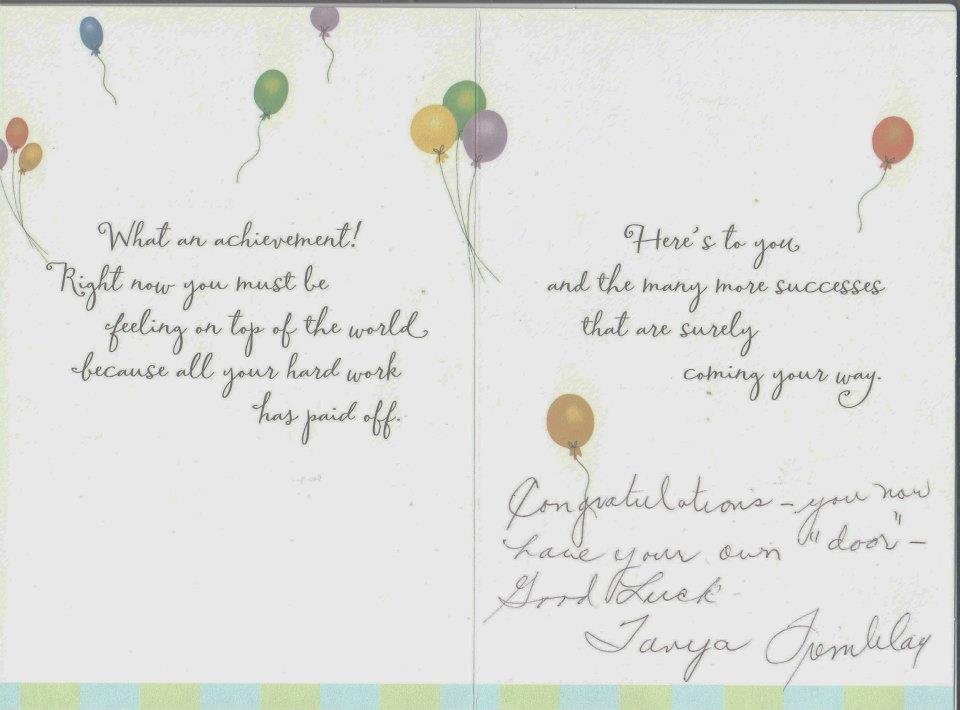 What an achievement!
Right now you must be
feeling on top of the world
because all your hard work
has paid off.
Here's to you
and the many more successes
that are surely
coming your way.
Congratulations – you now
have your own "door" –
Good Luck
Tanya Tremblay